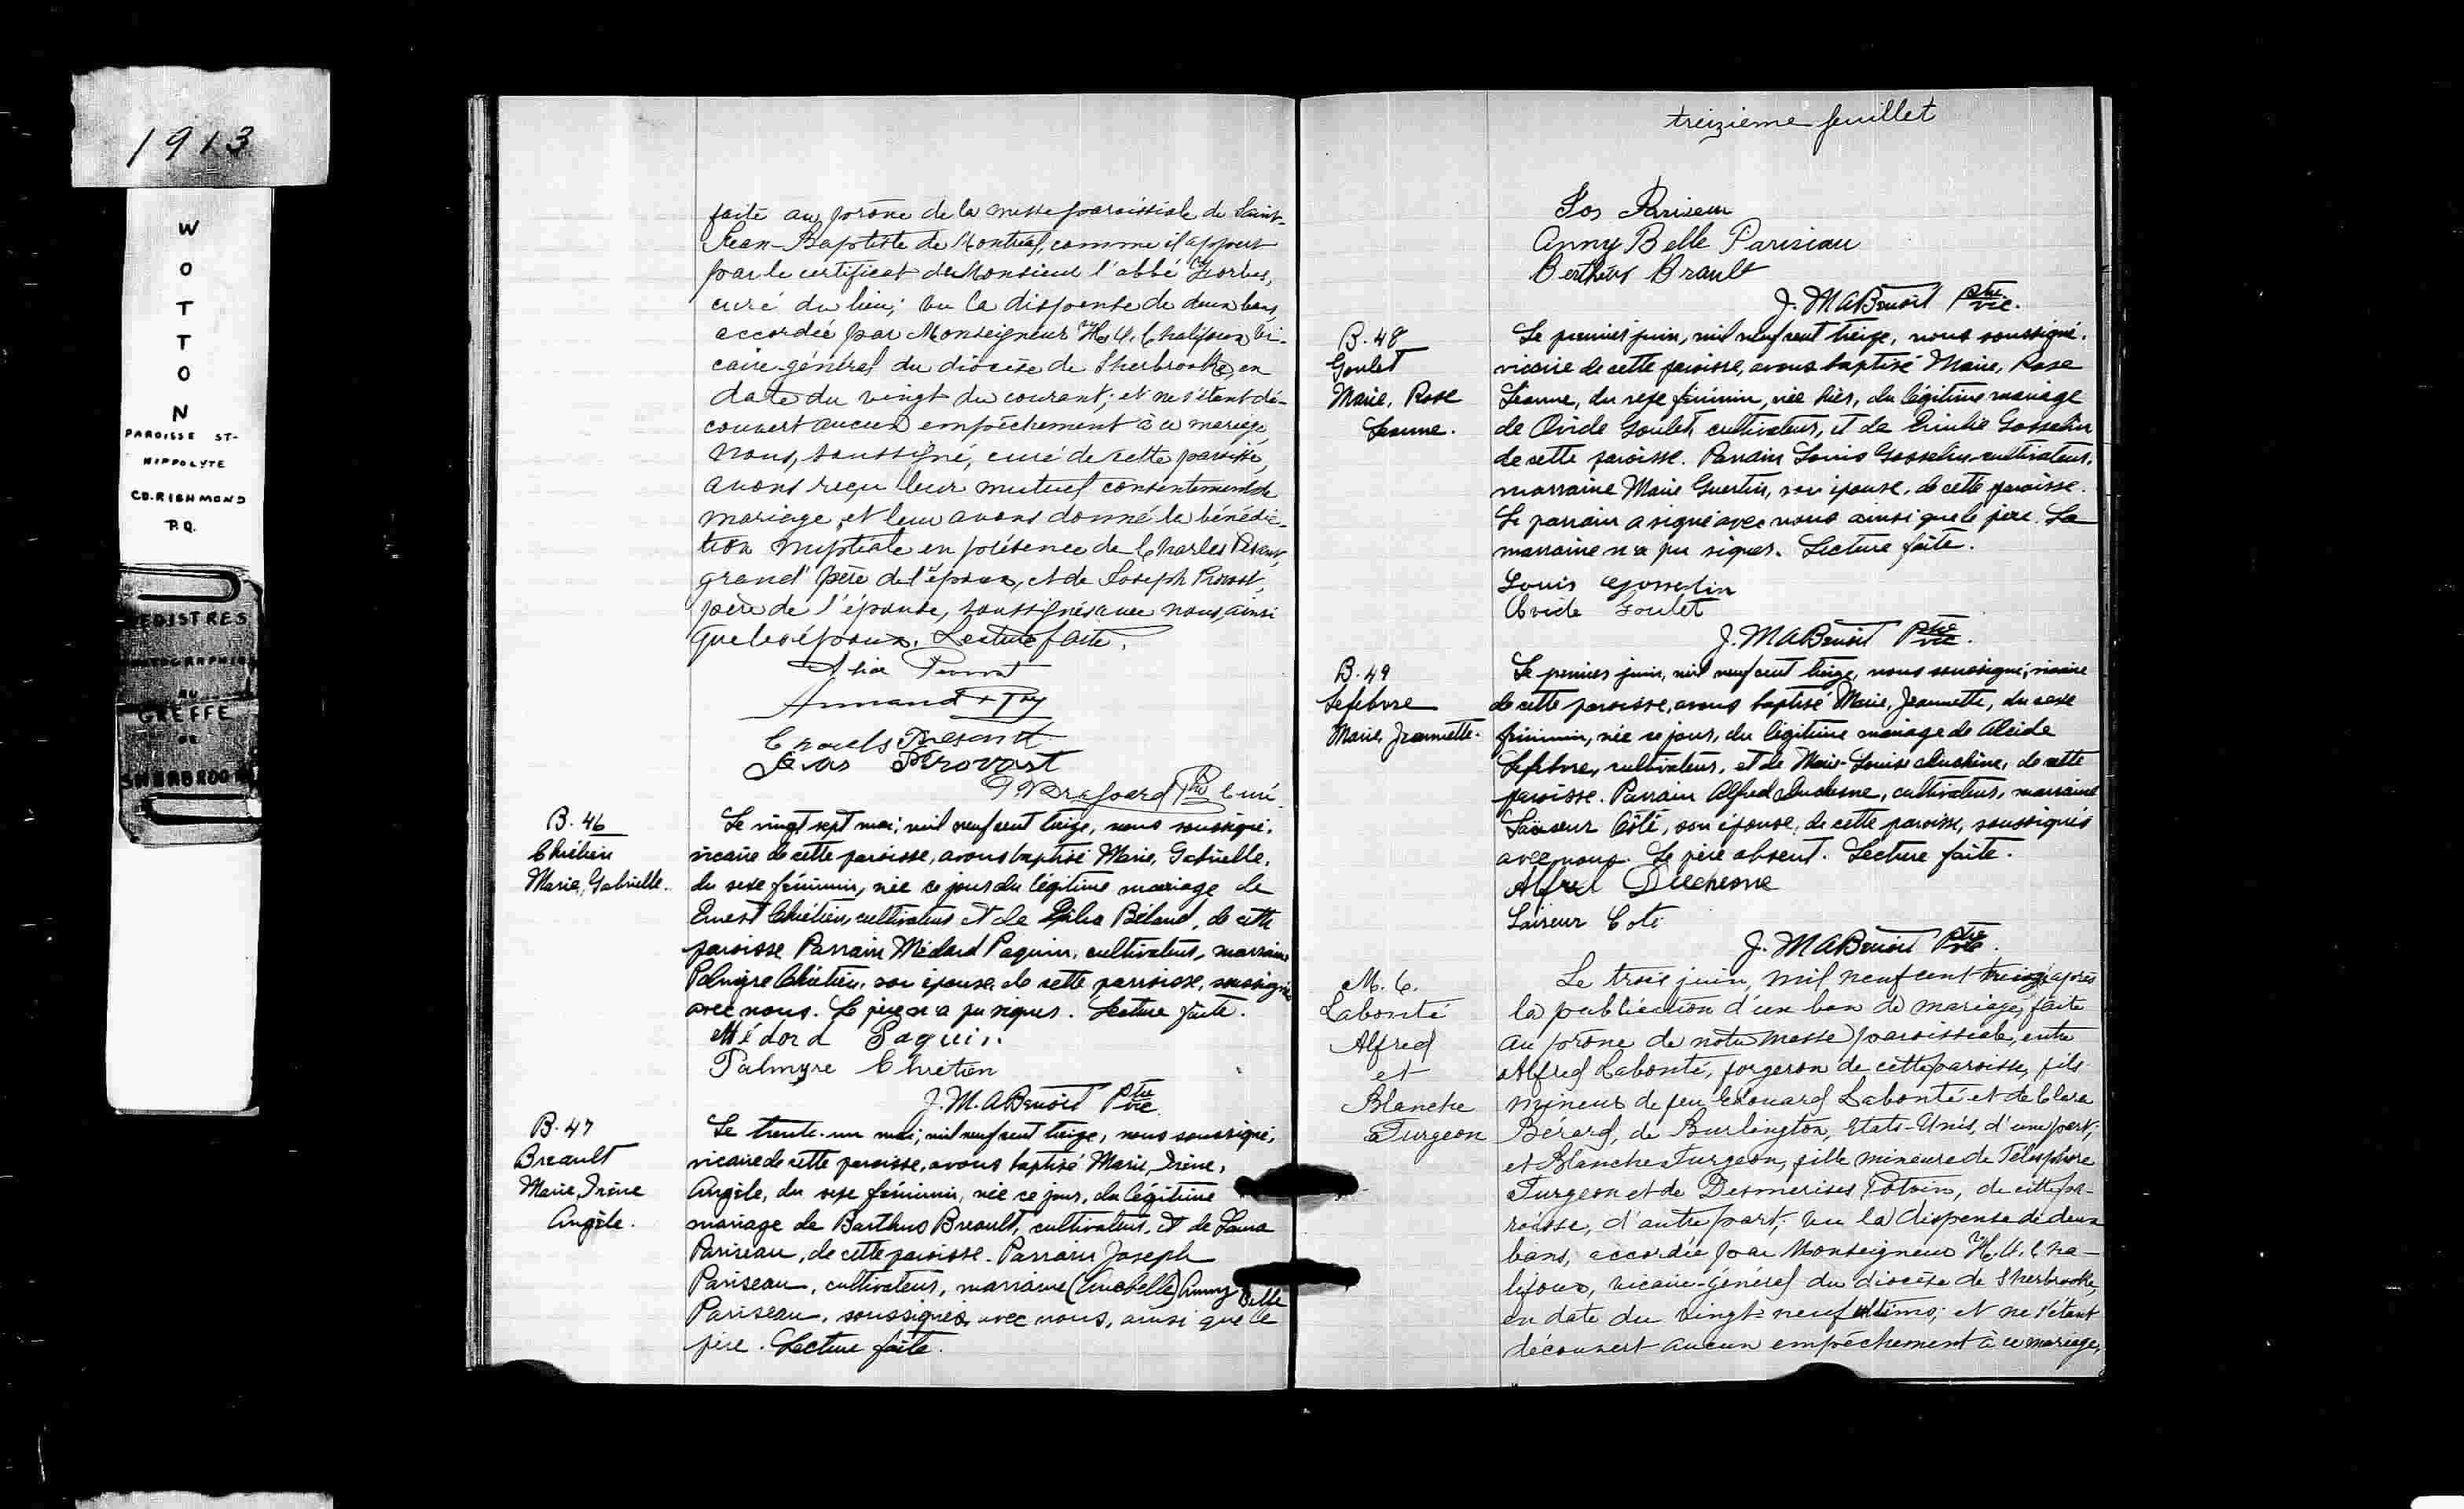 1913
W
O
T
T
O
N
PAROISSE ST-
HIPPOLYTE
CO. RICHMOND
P.Q.
REGISTRES
PHOTOGRAPHIES
AU
GREFFE
DE
SHERBROOKE
faite au prône de la messe paroissiale de Saint-
Jean-Baptiste de Montréal, comme il appert
par le certificat de Monsieur l'abbé Forbes,
curé du lieu; vu la dispense de deux bans
accordée par Monseigneur H. O. Chalifoux vi-
caire-général du diocèse de Sherbrooke, en
date du vingt du courant; et ne s'étant dé-
couvert aucun empêchement à ce mariage,
Nous, soussigné, curé de cette paroisse,
avons reçu leur mutuel consentement de
mariage, et leur avons donné la bénédic-
tion nuptiale en présence de Charles
grand'père de l'époux, et de Joseph Provost,
père de l'épouse, soussignés avec nous, ainsi
que les époux. Lecture faite.
Armand Roy
Provost
Ptre Curé
B. 46
Chrétien
Marie, Gabrielle.
Le vingt sept mai, mil neuf cent treize, nous soussigné,
vicaire de cette paroisse, avons baptisé Marie, Gabrielle,
du sexe féminin, née ce jour du légitime mariage de
Ernest Chrétien, cultivateur et de Béland, de cette
paroisse. Parrain Médard Paquin, cultivateur, marraine
Palmyre Chrétien, son épouse, de cette paroisse, soussignés
avec nous. Le père n'a pu signer. Lecture faite.
Médord Paquin
Palmyre Chrétien
J. M. A Benoit Ptre vic.
B. 47
Breault
Marie, Irène
Angèle.
Le trente-un mai, mil neuf cent treize, nous soussigné,
vicaire de cette paroisse, avons baptisé Marie, Irène,
Angèle, du sexe féminin, née ce jour, du légitime
mariage de Barthus Breault, cultivateur, et de Laura
Pariseau, de cette paroisse. Parrain Joseph
Pariseau, cultivateur, marraine Anny Belle
Pariseau, soussignés avec nous, ainsi que le
père. Lecture faite.
treizième feuillet
Jos Pariseau
Anny Belle Parisiau
Brault
J. M A Benoit Ptre vic.
B. 48
Goulet
Marie, Rose
Jeanne.
Le premier juin, mil neuf cent treize, nous soussigné,
vicaire de cette paroisse, avons baptisé Marie, Rose
Jeanne, du sexe féminin, née hier, du légitime mariage
de Ovide Goulet, cultivateur, et de Emilie Gosselin
de cette paroisse. Parrain Louis Gosselin cultivateur,
marraine Marie Guertin, son épouse, de cette paroisse.
Le parrain a signé avec nous ainsi que le père. La
marraine n'a pu signer. Lecture faite.
Louis Gosselin
Ovide Goulet
J. M A Benoit Ptre vic.
B. 49
Lefebvre
Marie, Jeannette.
Le premier juin, mil neuf cent treize, nous soussigné, vicaire
de cette paroisse, avons baptisé Marie, Jeannette, du sexe
féminin, née ce jour, du légitime mariage de Alcide
Lefebvre, cultivateur, et de Marie-Louise Duchêne, de cette
paroisse. Parrain Alfred Duchesne, cultivateur, marraine
Côté, son épouse, de cette paroisse, soussignés
avec nous. Le père absent. Lecture faite.
Alfred Duchesne
Coté
J. M A Benoit Ptre vic.
M. 6.
Labonté
Alfred
et
Blanche
Turgeon
Le trois juin, mil neuf cent treize, après
la publication d'un ban de mariage, faite
au prône de notre messe paroissiale, entre
Alfred Labonté, forgeron de cette paroisse, fils
mineur de feu Edouard Labonté et de Clara
Bérard, de Burlington, Etats-Unis, d'une part;
et Blanche Turgeon, fille mineure de Télesphore
Turgeon et de Desmerises Potvin, de cette pa-
roisse, d'autre part; vu la dispense de deux
bans, accordée par Monseigneur H. O. Cha-
lifoux, vicaire-général du diocèse de Sherbrooke,
en date du vingt-neuf ultimo; et ne s'étant
découvert aucun empêchement à ce mariage,